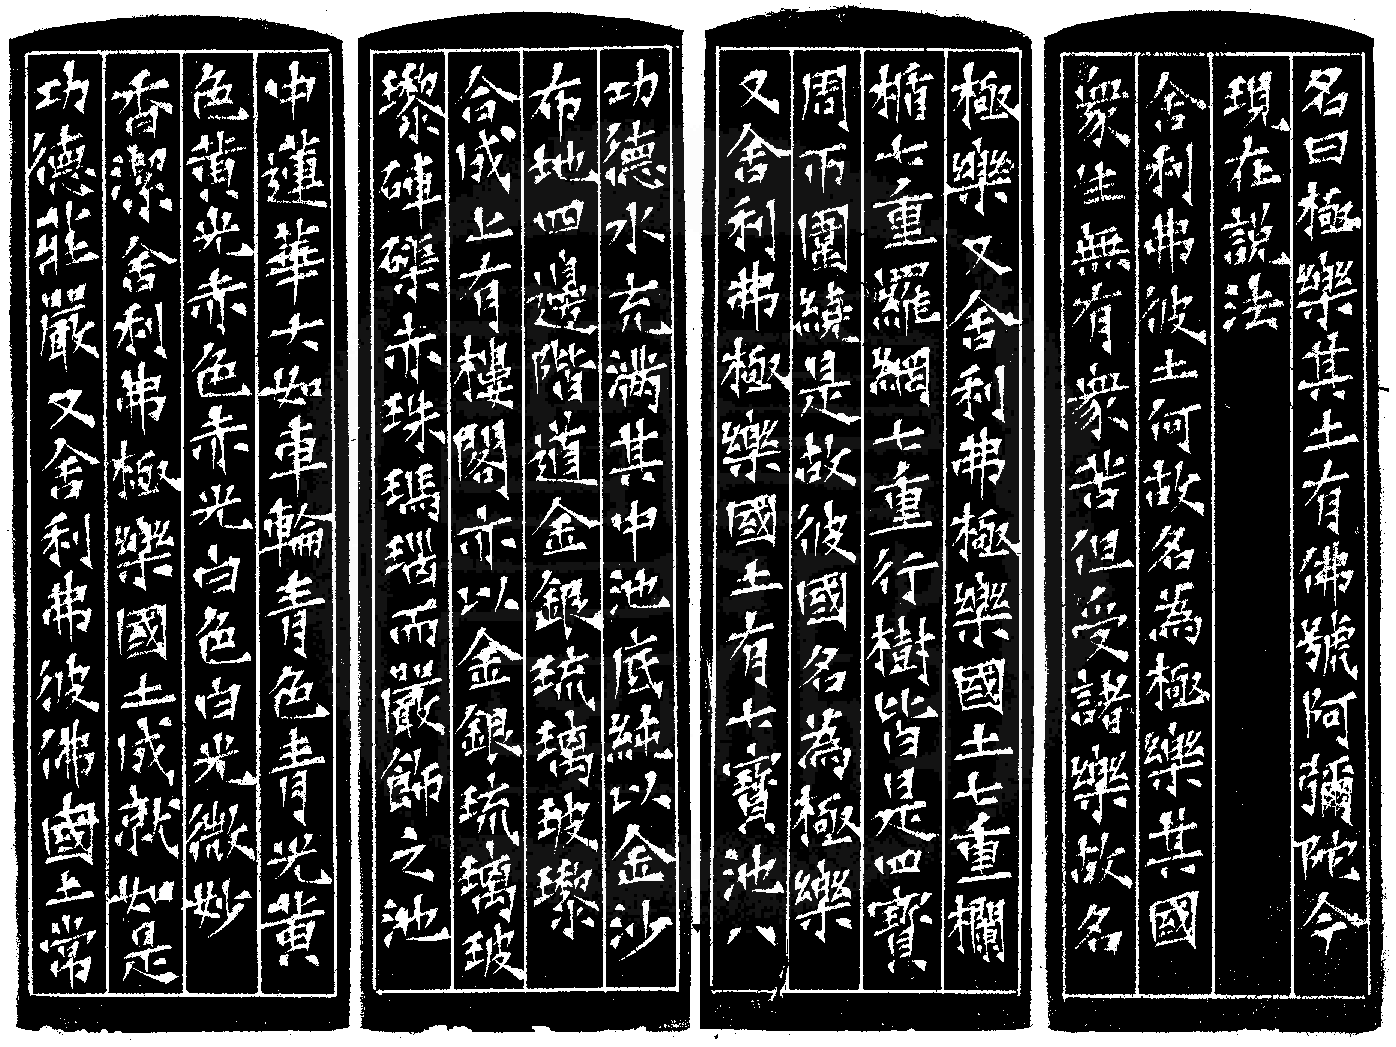 名曰極樂其土有佛號阿彌陀今
現在說法
舍利弗彼土何故名為極樂其國
衆生無有衆苦但受諸樂故名
極樂又舍利弗極樂國土七重欄
楯七重羅網七重行樹皆是四寶
周帀圍繞是故彼國名為極樂
又舍利弗極樂國土有七寶池八
功德水充滿其中池底純以金沙
布地四邊階道金銀琉璃玻瓈
合成上有樓閣亦以金銀琉璃玻
瓈硨磲赤珠瑪瑙而嚴飾之池
中蓮華大如車輪青色青光黃
色黃光赤色赤光白色白光微妙
香潔舍利弗極樂國土成就如是
功德莊嚴又舍利弗彼佛國土常